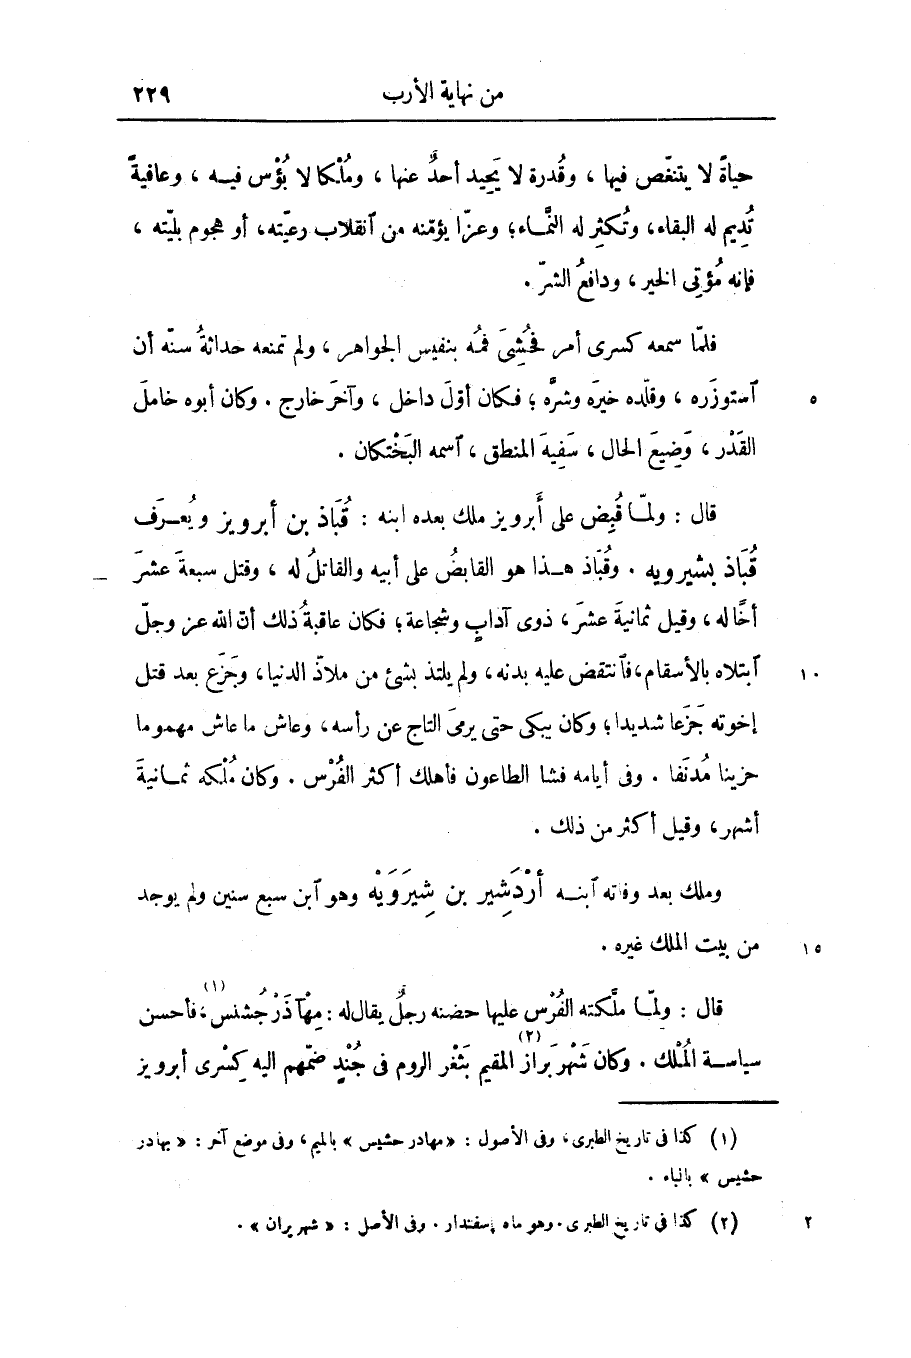 من نهاية الأرب ٢٢٩
حياةً لا يتنغّص فيها ، وقُدرة لا يَحِيد أحدٌ عنها ، ومُلْكا لا بُؤْس فيـه ، وعافيةً
تُدِيم له البقاء، وتُكثِر له النَّمـاء؛ وعزّا يؤمّنه من آنقلاب رعيّته، أو هجوم بليّته ،
فإنه مُؤتِى الخير ، ودافعُ الشرّ .
فلمّا سمعه كسرى أمر فحُشِىَ فمُه بنفيس الجواهر ، ولم تمنعه حداثةُ سنّه أن
آستوزَره ، وقلّده خيرَه وشرَّه ؛ فكان أوّلَ داخل ، وآخرَ خارج . وكان أبوه خاملَ ٥
القَدْر ، وَضِيعَ الحال ، سَفِيهَ المنطق ، آسمه البَخْتكان .
قال : ولمّـا قُبِض على أَبرويز ملك بعده ابنه : قُبَاذ بن أبرويز ويُعـرَف
قُبَاذ بشيرويه . وقُبَاذ هـذا هو القابضُ على أبيه والقاتلُ له ، وقتل سبعةَ عشرَ
أخًا له ، وقيل ثمانيةَ عشرَ، ذوى آدابٍ وشجاعة؛ فكان عاقبةُ ذلك أنّ الله عز وجلّ
آبتلاه بالأسقام،فآنتقض عليه بدنه، ولم يلتذ بشئ من ملاذّ الدنيا، وجَزَع بعد قتل ١٠
إخوته جَزَعا شديدا؛ وكان يبكى حتى يرمىَ التاج عن رأسه، وعاش ما عاش مهموما
حزينا مُدنَفا . وفى أيامه فشا الطاعون فأهلك أكثر الفُرْس . وكان مُلْكه ثمـانيةَ
أشهر، وقيل أكثر من ذلك .
وملك بعد وفاته آبنـه أَرْدَشِير بن شِيرَوَيْه وهو آبن سبع سنين ولم يوجد
من بيت الملك غيره . ١٥
قال : ولمّـا ملَّكته الفُرْس عليها حضنه رجلٌ يقال له : مِهْآذَرْ جُشنس(١)،فأحسن
سياسـة المُلْك . وكان شَهْرَ بَراز(٢) المقيم بَثغْر الروم فى جُنْدٍ ضمّهم اليه كِسْرى أبرويز
(١) كذا فى تاريخ الطبرى، وفى الأصول : «مهادر حشيس » بالميم، وفى موضع آخر : « بهادر
حشيس » بالباء .
(٢) كذا فى تاريخ الطبرى. وهو ماه إسفندار . وفى الأصل : « شهريران » . ٢